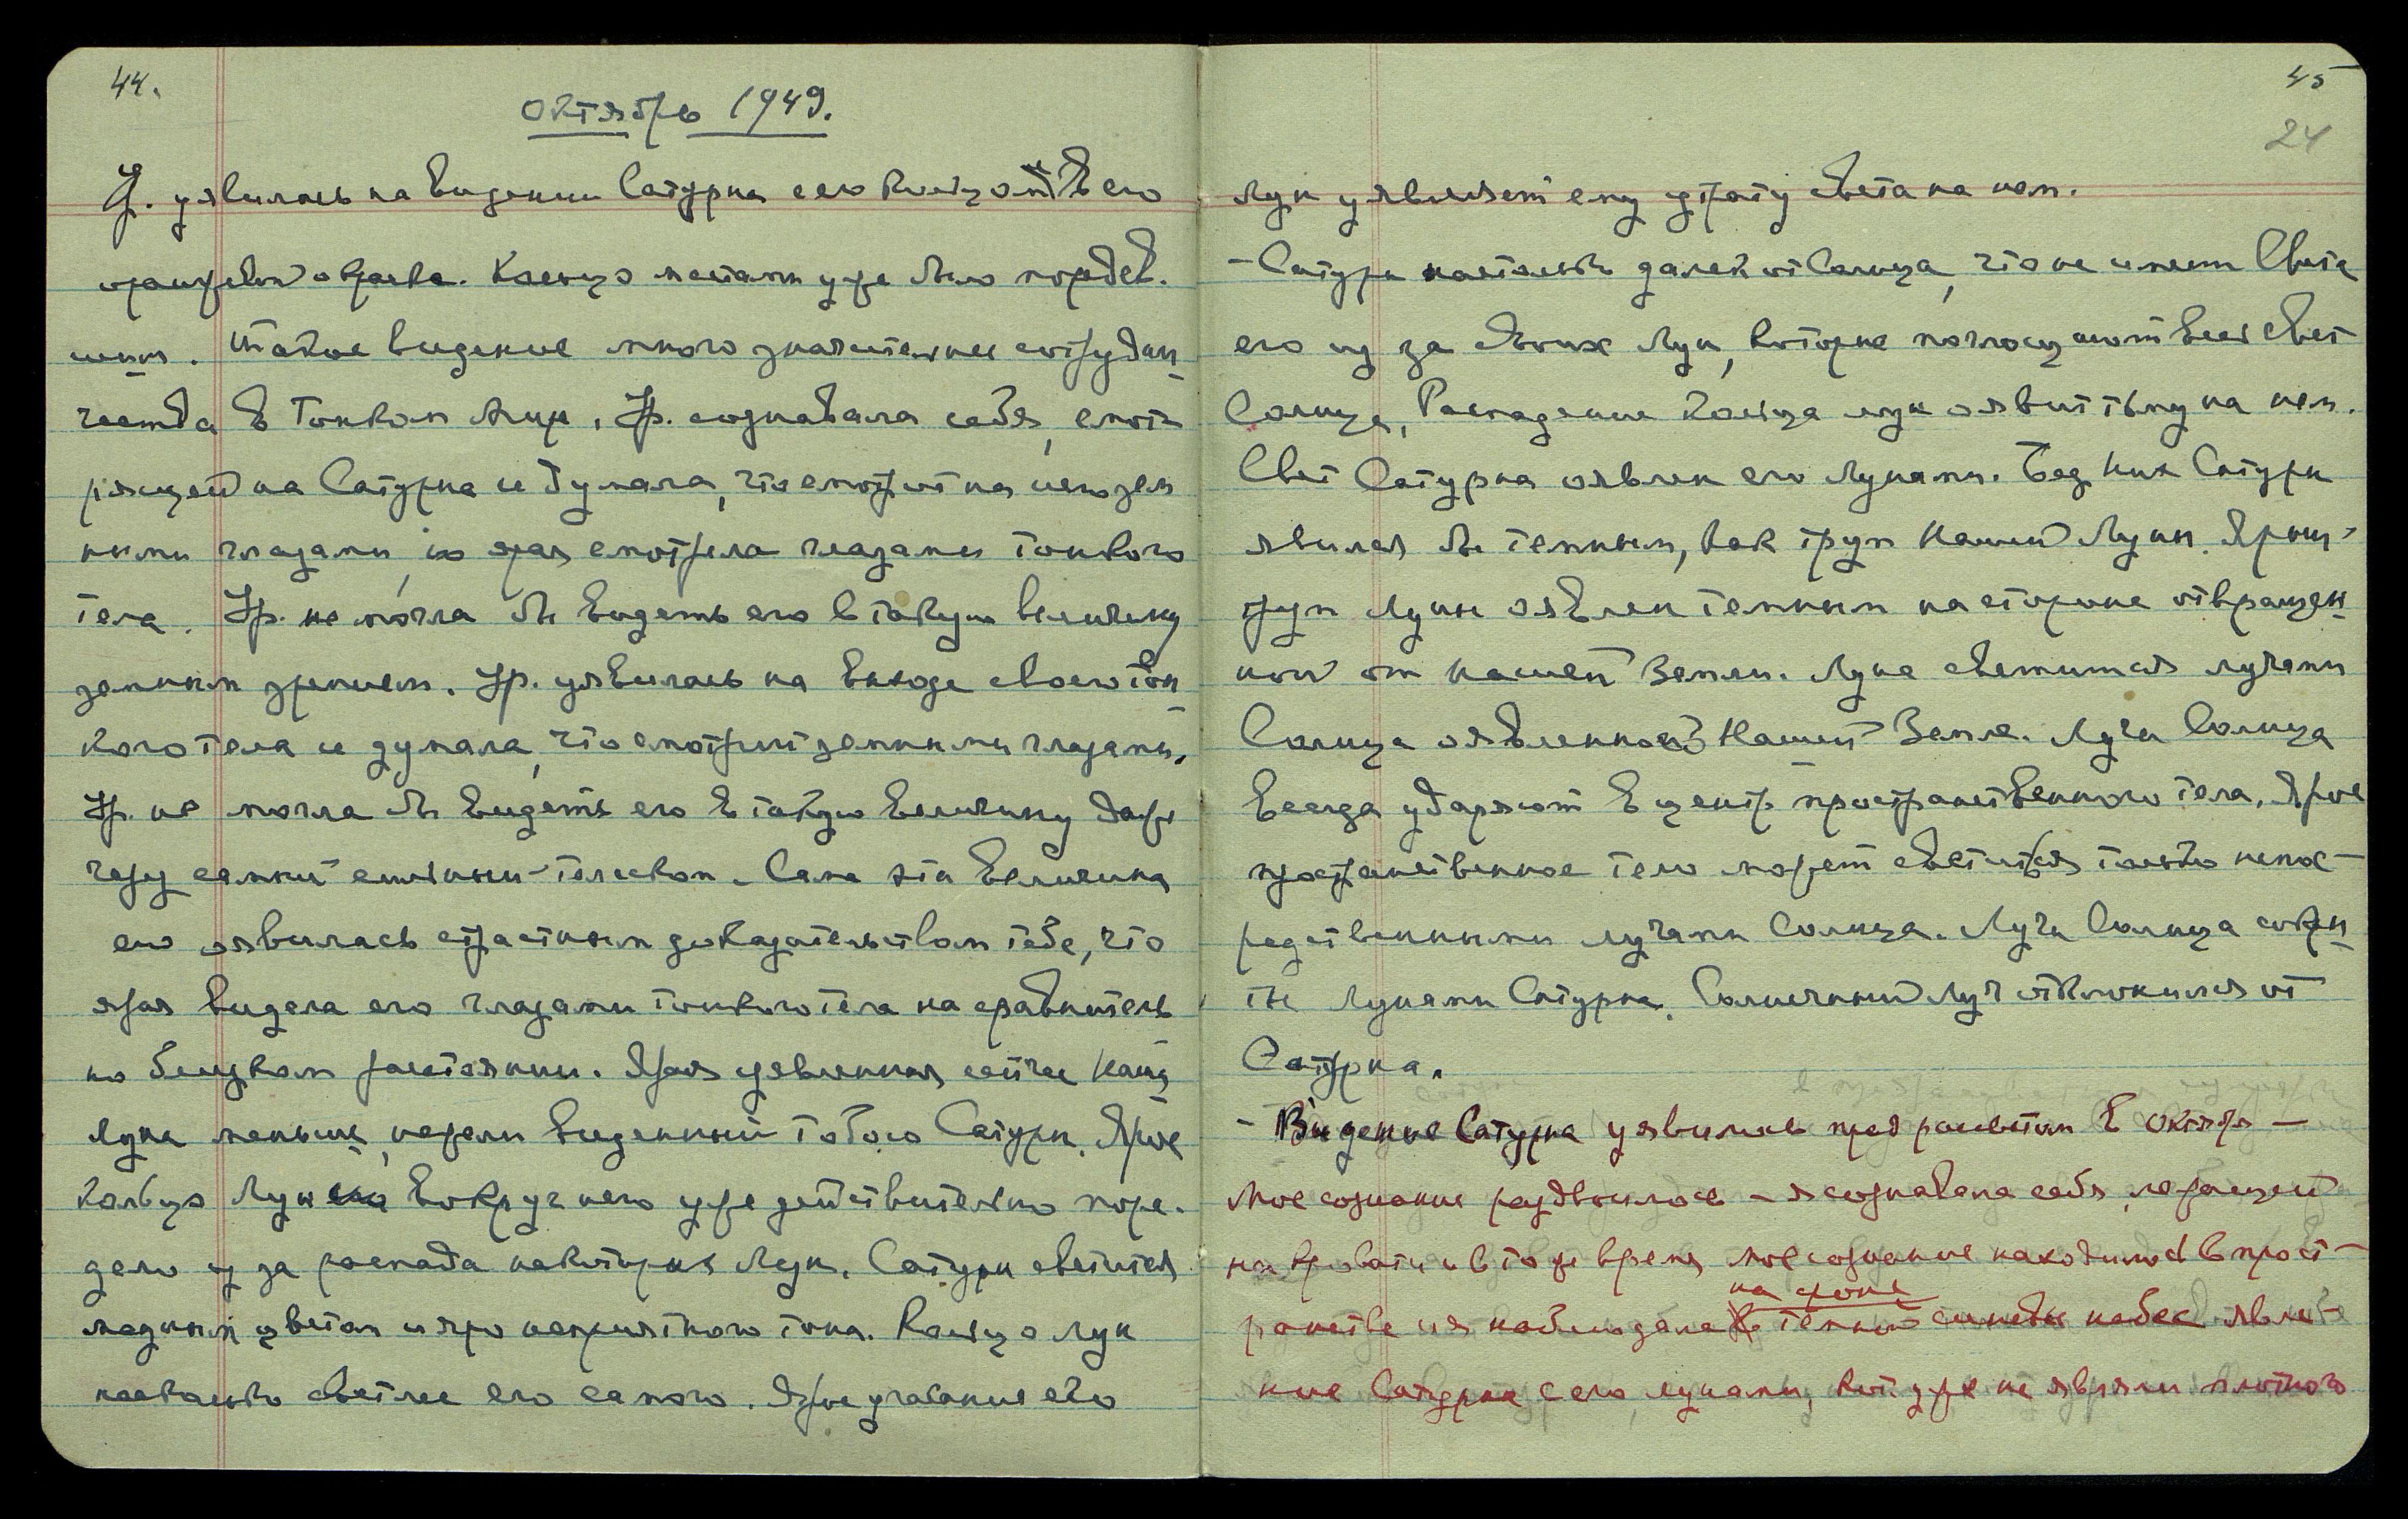 44.
октябрь 1949.
Ур. уявилась на видении Сатурна с его кольцом в его
оранжевой окраске. Кольцо местами уже было поредев-
шим. Такое видение много значительнее сотруднич-
чества в Тонком Мире. Ур. сознавала себя, смот-
рящей на Сатурна и думала, что смотрит на него зем-
ными глазами, но ярая смотрела глазами тонкого
тела. Ур. не могла бы видеть его в такую величину
земным зрением. Ур. уявилась на выходе своего тон-
кого тела и думала, что смотрит земными глазами.
Ур. не могла бы видеть его в такую величину даже
через самый сильный телескоп. Сама эта величина
его оявилась страстным доказательством тебе, что
ярая видела его глазами тонкого тела на сравнитель-
но близком расстоянии. Ярая уявленная сейчас Наша
Луна меньше, нежели виденный тобою Сатурн. Ярое
кольцо Лун вокруг него уже действительно поре-
дело из за распада некоторых Лун. Сатурн светится
медным цветом и яро неприятного тона. Кольцо Лун
несколько светлее его самого. Ярое угасание его
45
24
Лун уявляет ему утрату света на нем.
- Сатурн настолько далек от Солнца, что не имеет Света
его из за своих Лун, которые поглощают весь свет
Солнца. Распадение Кольца лун оявит тьму на нем.
Свет Сатурна оявлен его Лунами. Без них Сатурн
явился бы темным, как труп нашей Луны. Ярый
труп Луны оявлен темным на стороне отвращен-
ной от нашей Земли. Луна светится лучами
Солнца оявленной Нашей Земле. Лучи Солнца
всегда ударяют в центр пространственного тела. Ярое
пространственное тело может светиться только непос-
редственными лучами Солнца. Лучи Солнца сокры-
ты Лунами Сатурна. Солнечный Луч отклонился от
Сатурна.
- Видение Сатурна уявилось пред рассветом в октябре —
Мое сознание раздвоилось – я сознавала себя, лежащей
на кровати и в то же время мое сознание находилось в прост-
на фоне
ранстве и я наблюдала темной синевы небес явле-
ние Сатурна с его лунами, кот. уже не являли плотного